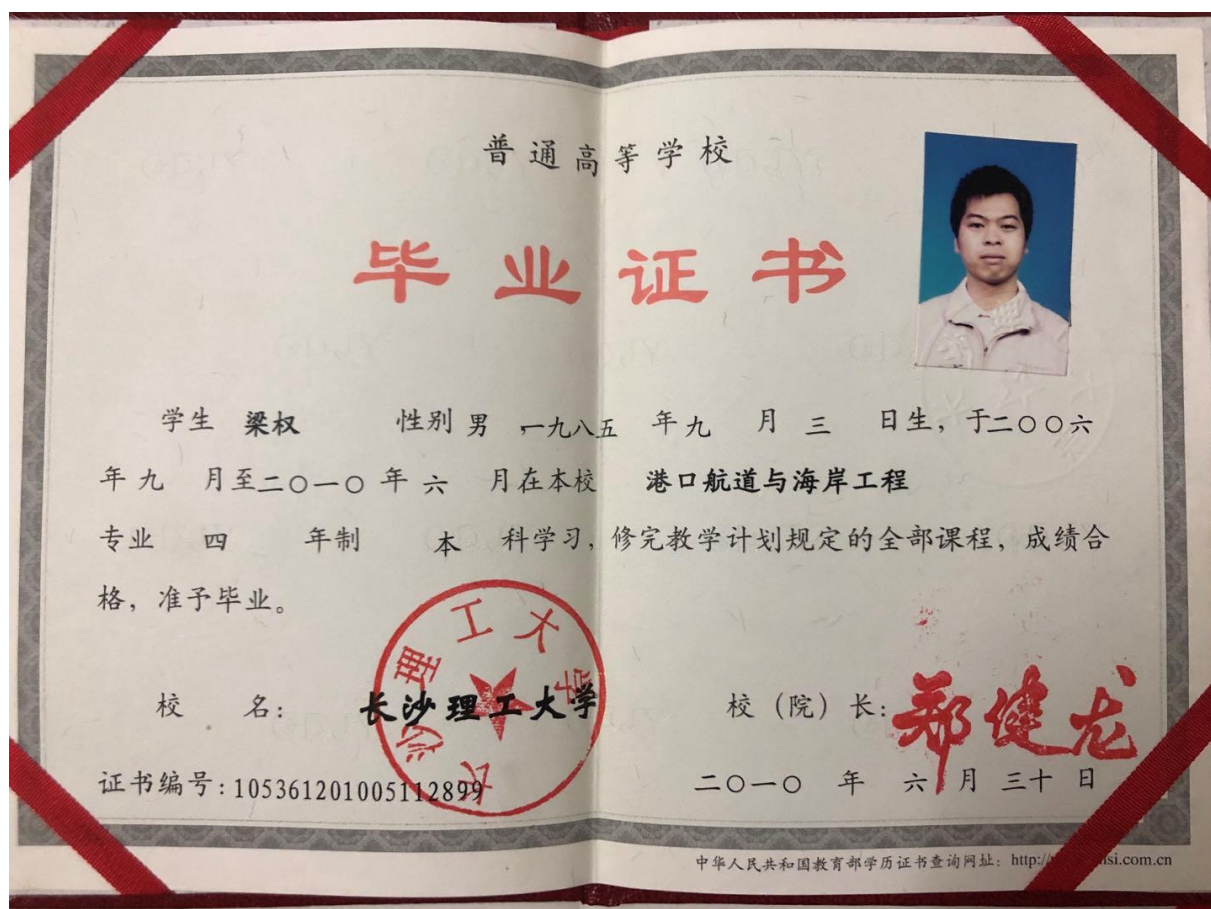 普通高等学校
毕业证书
学生 梁权 性别 男 一九八五 年 九 月 三 日生，于二〇〇六
年 九 月至二〇一〇 年 六 月在本校 港口航道与海岸工程
专业 四 年制 本 科学习，修完教学计划规定的全部课程，成绩合
格，准予毕业。
长沙理工大学
校 名： 长沙理工大学 校（院）长：郑健龙
证书编号：105361201005112899 二〇一〇 年 六 月 三十 日
中华人民共和国教育部学历证书查询网址：http:// si.com.cn